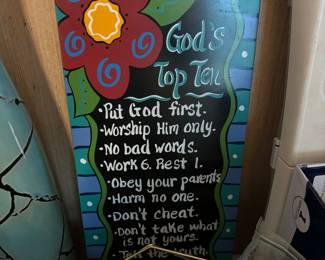 God's
Top Ten
• Put God first.
• Worship Him only.
• No bad words.
• Work 6. Rest 1.
• Obey your parents
• Harm no one.
• Don't cheat.
• Don't take what
is not yours.
Tell the truth.